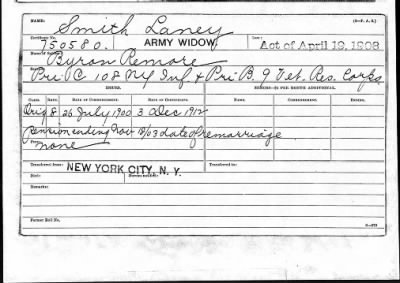 NAME: Smith Laney (D.—P. A. S.)
Certificate No. 750580. ARMY WIDOW. Law: Act of April 19, 1908
Soldier: Byron Remore
Service: Pri C. 108 N.Y. Inf. & Pri B. 9 Vet. Res. Corps
ISSUE. MINORS—$2 PER MONTH ADDITIONAL.
CLASS. RATE. DATE OF COMMENCEMENT. DATE OF CERTIFICATE. NAMES. COMMENCING. ENDING.
Orig 8 26 July 1900 3 Dec 1912
Pension ending Nov 18/03 date of remarriage
none
Transferred from: NEW YORK CITY, N. Y. Transferred to:
Died:
Remarks:
Former Roll No.